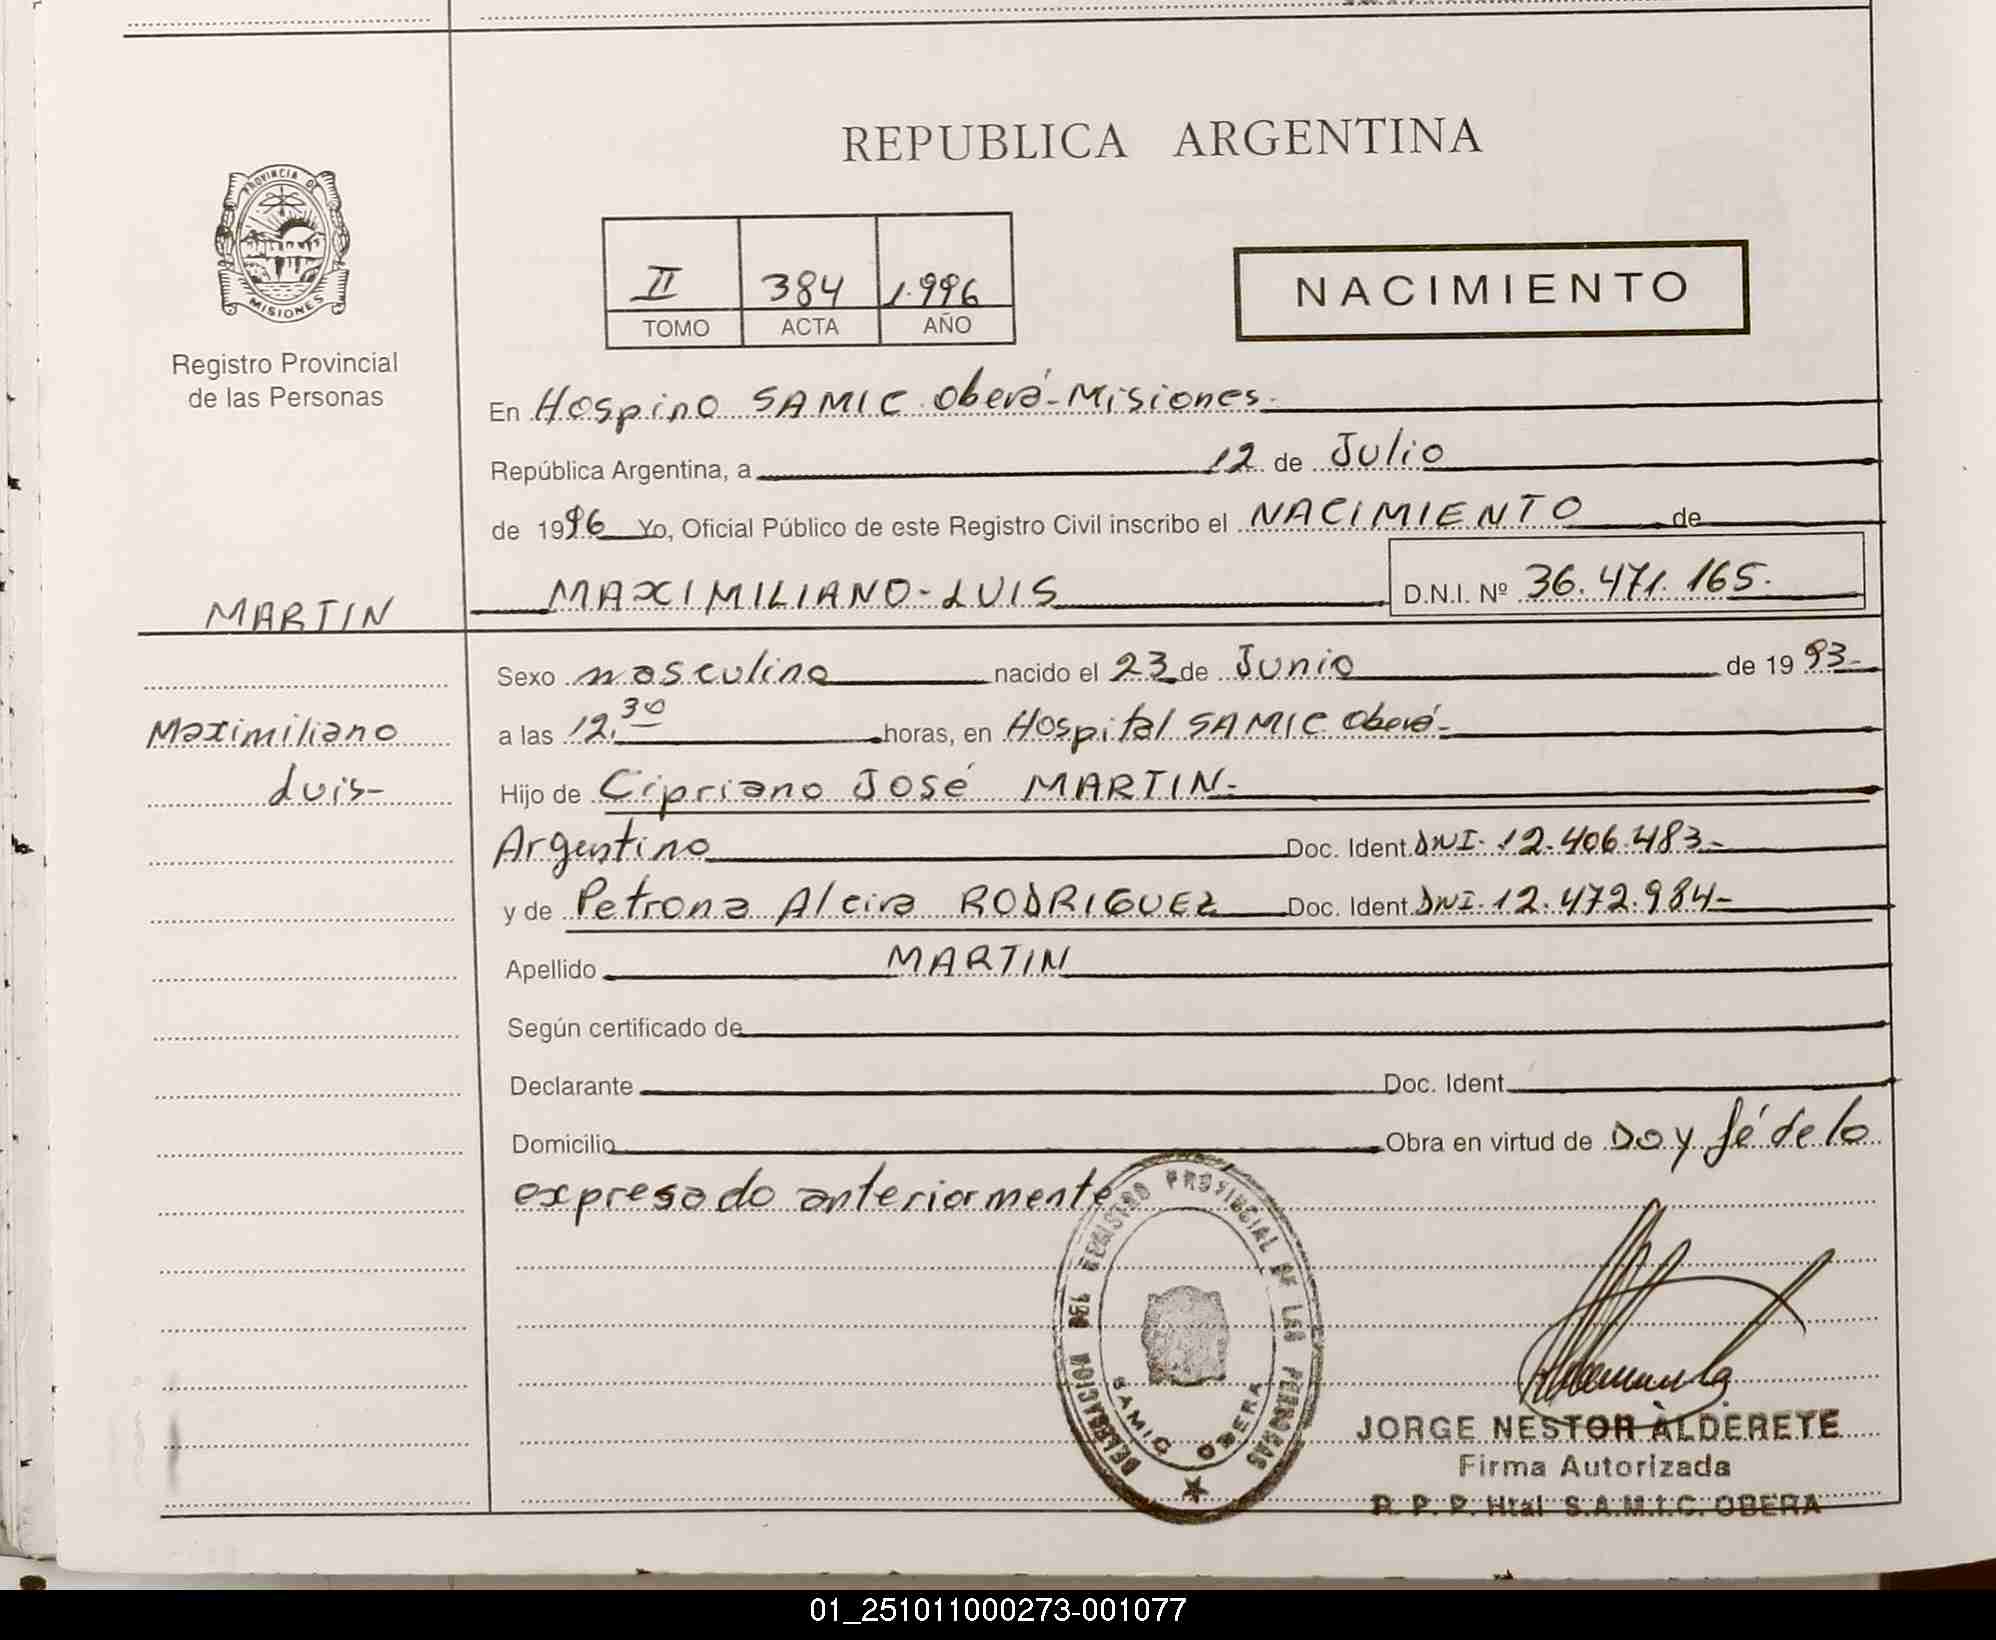 REPUBLICA ARGENTINA
PROVINCIA DE MISIONES
Registro Provincial
de las Personas
II 384 1.996
TOMO ACTA AÑO
NACIMIENTO
En Hospino SAMIC Oberá-Misiones-
República Argentina, a 12 de Julio
de 1996 Yo, Oficial Público de este Registro Civil inscribo el NACIMIENTO de
MARTIN MAXIMILIANO-LUIS D.N.I. Nº 36.471.165.
Sexo masculino nacido el 23 de Junio de 1993-
Maximiliano
Luis-
a las 12.30 horas, en Hospital SAMIC Oberá-
Hijo de Cipriano José MARTIN-
Argentino Doc. Ident. DNI. 12.406.483-
y de Petrona Alcira RODRIGUEZ Doc. Ident. DNI. 12.472.984-
Apellido MARTIN
Según certificado de
Declarante Doc. Ident.
Domicilio Obra en virtud de Doy fé de lo
expresado anteriormente
DELEGACION DEL REGISTRO PROVINCIAL DE LAS PERSONAS
SAMIC OBERA
JORGE NESTOR ALDERETE
Firma Autorizada
R. P. P. Htal S.A.M.I.C. OBERA
01_251011000273-001077